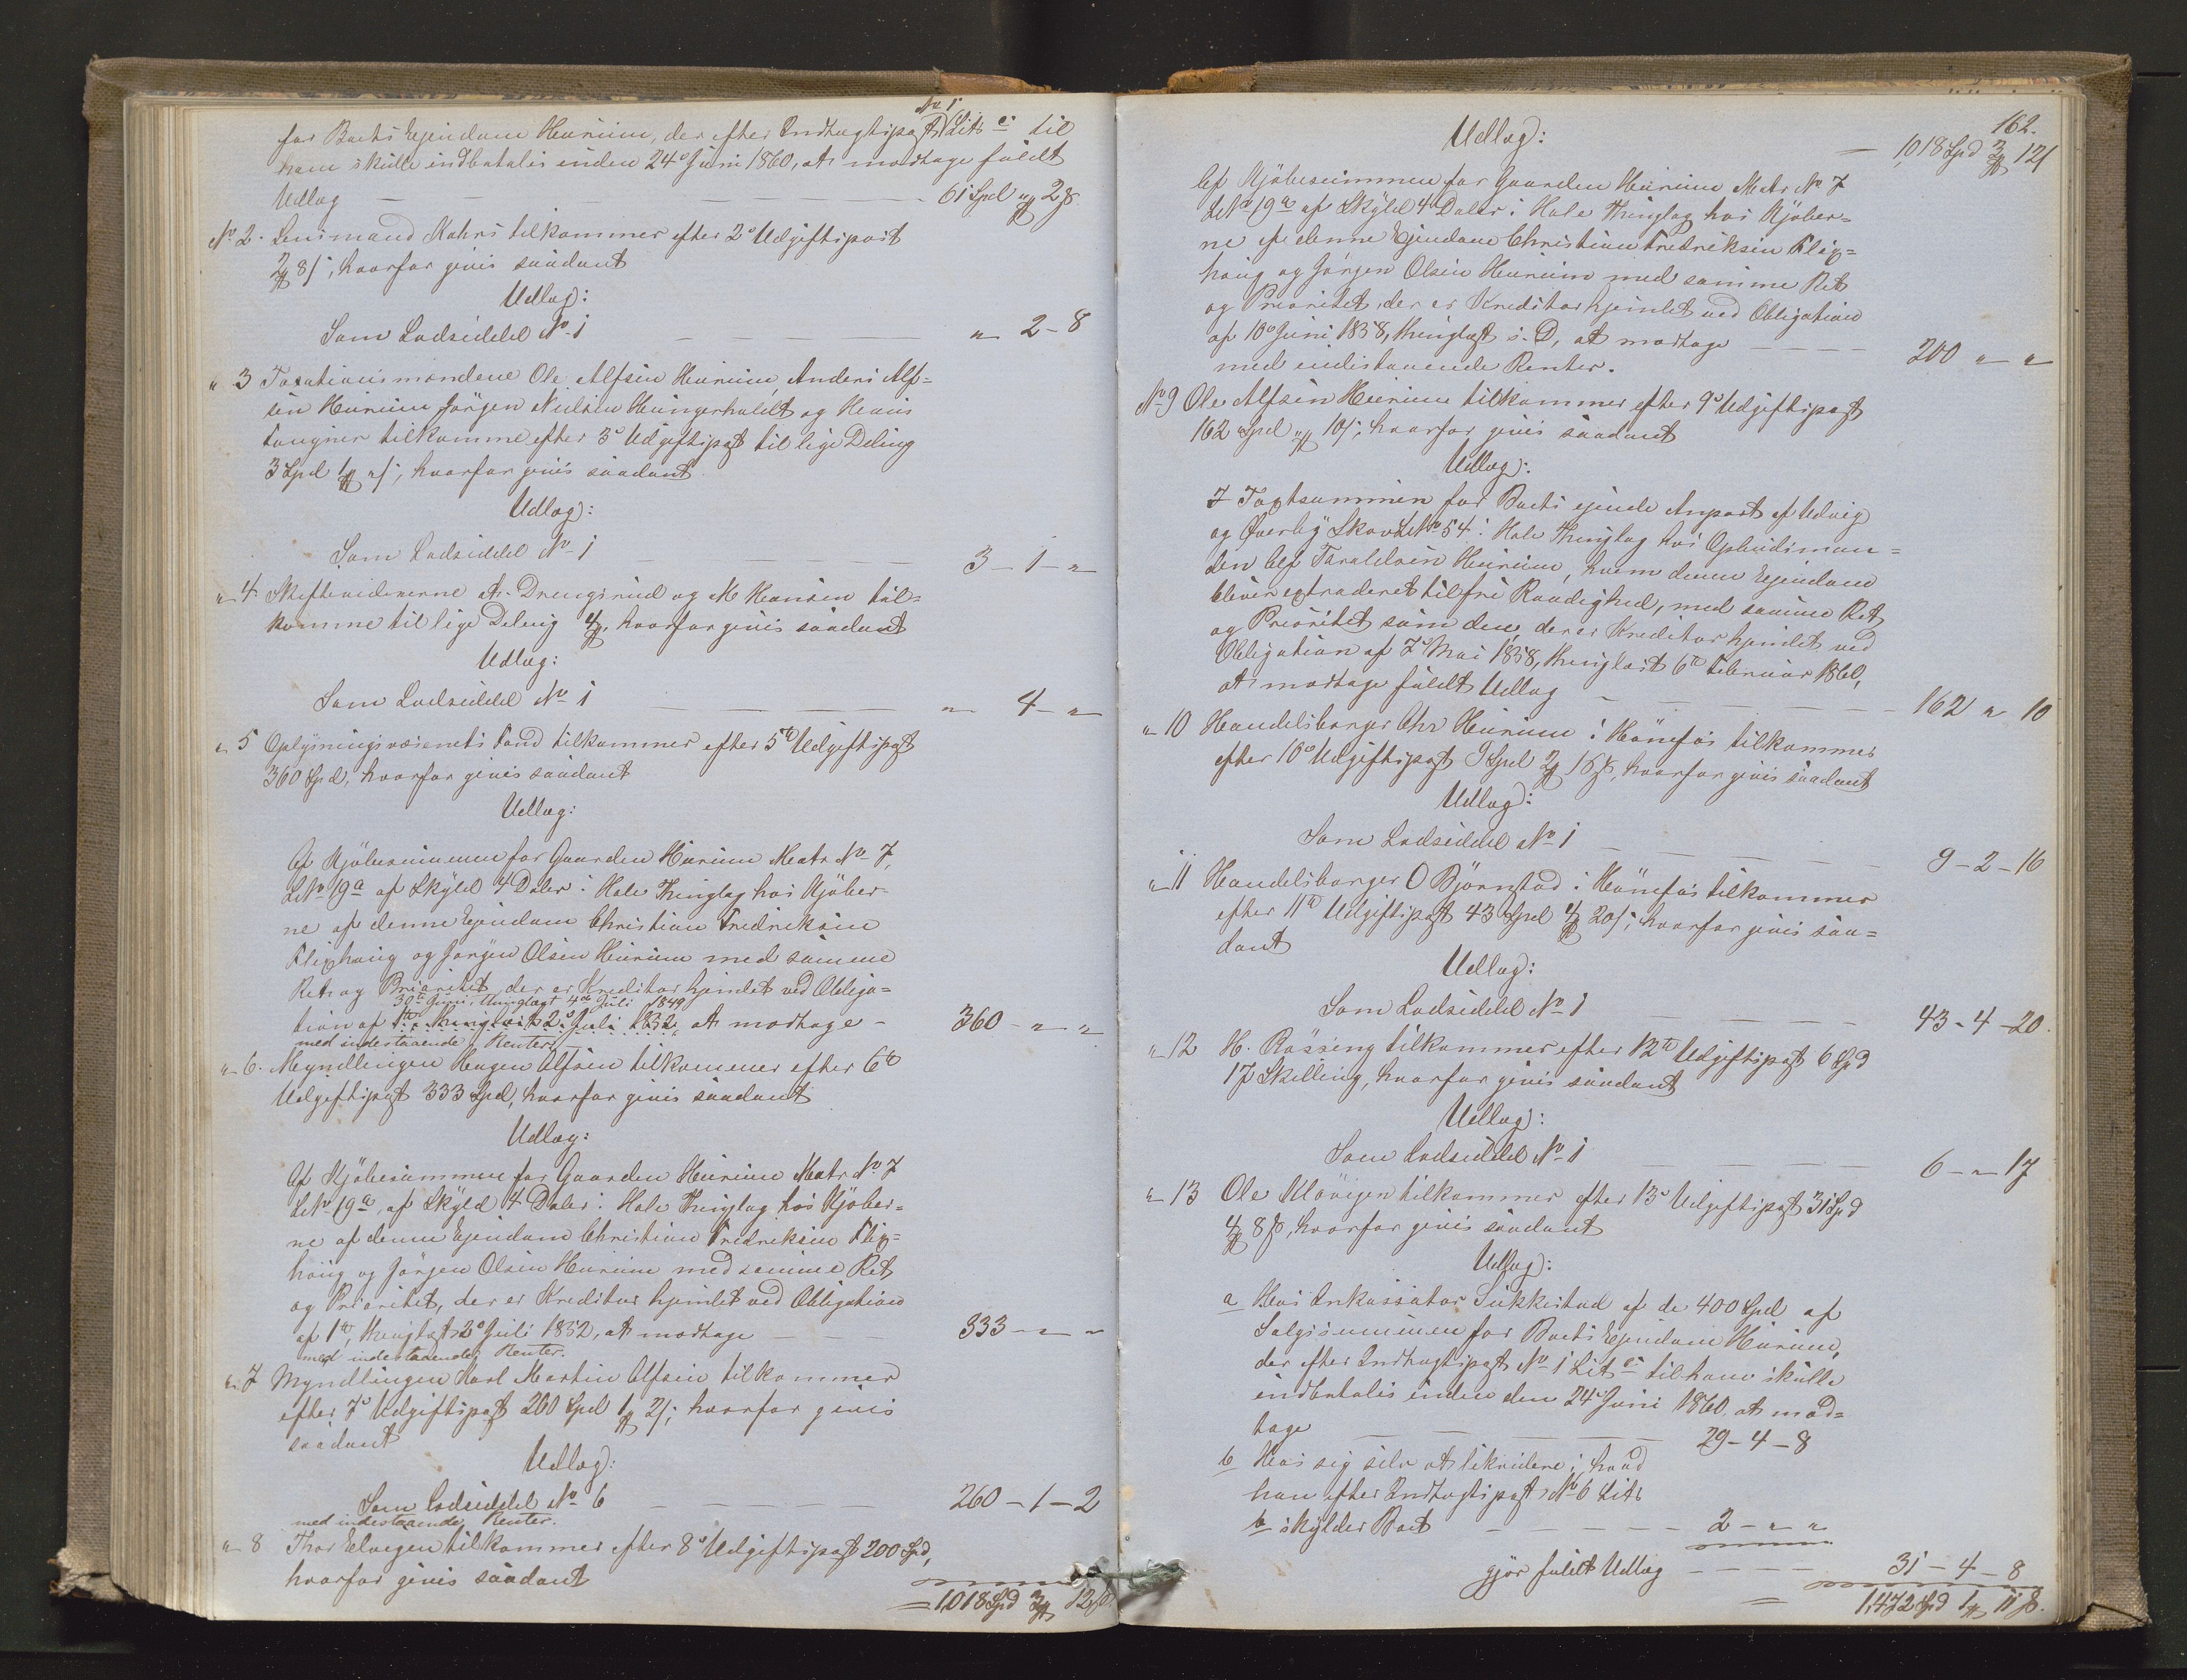 No 1
for Boets Ejendom Hurum, der efter Indtægtspost Lit c til
ham skulle indbetales inden 24de Juni 1860, at modtage fuldt
Udlæg — — — 61 Spd " 2 ß.
No 2. Lensmand Kahrs tilkommer efter 2den Udgiftspost
2 8ß, hvorfor gives saadant
Udlæg:
Som Lodseddel No 1 — — — " 2 - 8
" 3 Taxationsmændene Ole Alfsen Hurum, Anders Alf-
sen Hurum, Jörgen Nielsen Hungerholdt og Hans
tilkomme efter 3die Udgiftspost til lige Deling
3 Spd 1 " ß, hvorfor gives saadant
Udlæg:
Som Lodseddel No 1 — — — 3 - 1 - "
" 4. Skiftevidnerne A. Drengsrud og M Hansen til-
komme til lige Deling 4, hvorfor gives saadant
Udlæg:
Som Lodseddel No 1 — — — " 4 - "
" 5 Oplysningsvæsenets Fond tilkommer efter 5te Udgiftspost
360 Spd, hvorfor gives saadant
Udlæg:
Af Kjöbesummen for Gaarden Hurum Matr No 7,
LNo 19a af Skyld 4 Daler i Hole Thinglag hos Kjöber-
ne af denne Ejendom Christian Fredriksen
Flexhaug og Jörgen Olsen Hurum med samme
Ret og Prioritet, der er Kreditor hjemlet ved Obliga-
30te Juni, thinglæst 4de Juli 1849
tion af 1te, thinglæst 2den Juli 1852, at modtage - 360 - " - "
med indestaaende Renter.
" 6. Myndlingen Haagen Alfsen tilkommer efter 6te
Udgiftspost 333 Spd, hvorfor gives saadant
Udlæg:
Af Kjöbesummen for Gaarden Hurum Matr No 7
LNo 19a, af Skyld 4 Daler i Hole Thinglag hos Kjöber-
ne af denne Ejendom Christian Fredriksen Flex-
haug og Jörgen Olsen Hurum med samme Ret
og Prioritet, der er Kreditor hjemlet ved Obligation
af 1te, thinglæst 2den Juli 1852, at modtage — — 333 - " - "
med indestaaende Renter.
" 7 Myndlingen Karl Martin Alfsen tilkommer
efter 7de Udgiftspost 260 Spd 1 2ß; hvorfor gives
saadant
Udlæg:
Som Lodseddel No 6 — — — 260 - 1 - 2
med indestaaende Renter.
" 8 Thor Elvegen tilkommer efter 8de Udgiftspost 200 Spd,
hvorfor gives saadant
= 1018 Spd 3 12 ß.
162.
Udlæg:
— 1,018 Spd 3 12ß
Af Kjöbesummen for Gaarden Hurum Matr No 7
LNo 19a af Skyld 4 Daler i Hole Thinglag hos Kjöber-
ne af denne Ejendom Christian Fredriksen Flex-
haug og Jörgen Olsen Hurum med samme Ret
og Prioritet, der er Kreditor hjemlet ved Obligation
af 10de Juni 1858, thinglæst s. D, at modtage — — —
med indestaaende Renter. 200 " "
No 9 Ole Alfsen Hurum tilkommer efter 9de Udgiftspost
162 Spd " 10ß; hvorfor gives saadant
Udlæg:
I Taxtsummen for Boets eiende Anpart af Udvig
og Överby Skov LNo 54 i Hole Thinglag hos Opbudsman-
den Alf Taraldsen Hurum, hvem denne Ejendom
bliver extraderet til fri Raadighed, med samme Ret
og Prioritet som den, der er Kreditor hjemlet ved
Obligation af 7de Mai 1858, thinglæst 6te Februar 1860,
at modtage fuldt Udlæg — — — 162 " 10
" 10 Handelsborger Chr Hurum i Hönefos tilkommer
efter 10de Udgiftspost 9 Spd 2 16 ß, hvorfor gives saadant
Udlæg:
Som Lodseddel No 1 — — — 9 - 2 - 16
" 11 Handelsborger O Björnstad i Hönefos tilkommer
efter 11te Udgiftspost 43 Spd 4 20ß; hvorfor gives saa-
dant
Udlæg:
Som Lodseddel No 1 — — — 43 - 4 - 20.
" 12 H. Rössing tilkommer efter 12te Udgiftspost 6 Spd
17 Skilling, hvorfor gives saadant
Udlæg:
Som Lodseddel No 1 — — — 6 - " 17
" 13 Ole Klövigen tilkommer efter 13de Udgiftspost 31 Spd
4 8 ß, hvorfor gives saadant
Udlæg:
a Hos Inkassator Sukkestad af de 400 Spd af
Salgssummen for Boets Ejendom Hurum,
der efter Indtægtspost No 1 Lit c til ham skulle
indbetales inden den 24de Juni 1860, at mod-
tage — — — 29 - 4 - 8
b Hos sig selv at likvidere i hvad
han efter Indtægtspost No 6 Litr
b skylder Boet — — — 2 - " "
gjör fuldt Udlæg — — — 31 - 4 - 8
= 1,472 Spd 1 11 ß.